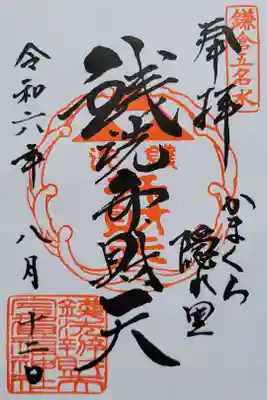 鎌倉五名水
奉拝
かまくら
隠れ里
銭洗弁財天
令和六年八月十二日